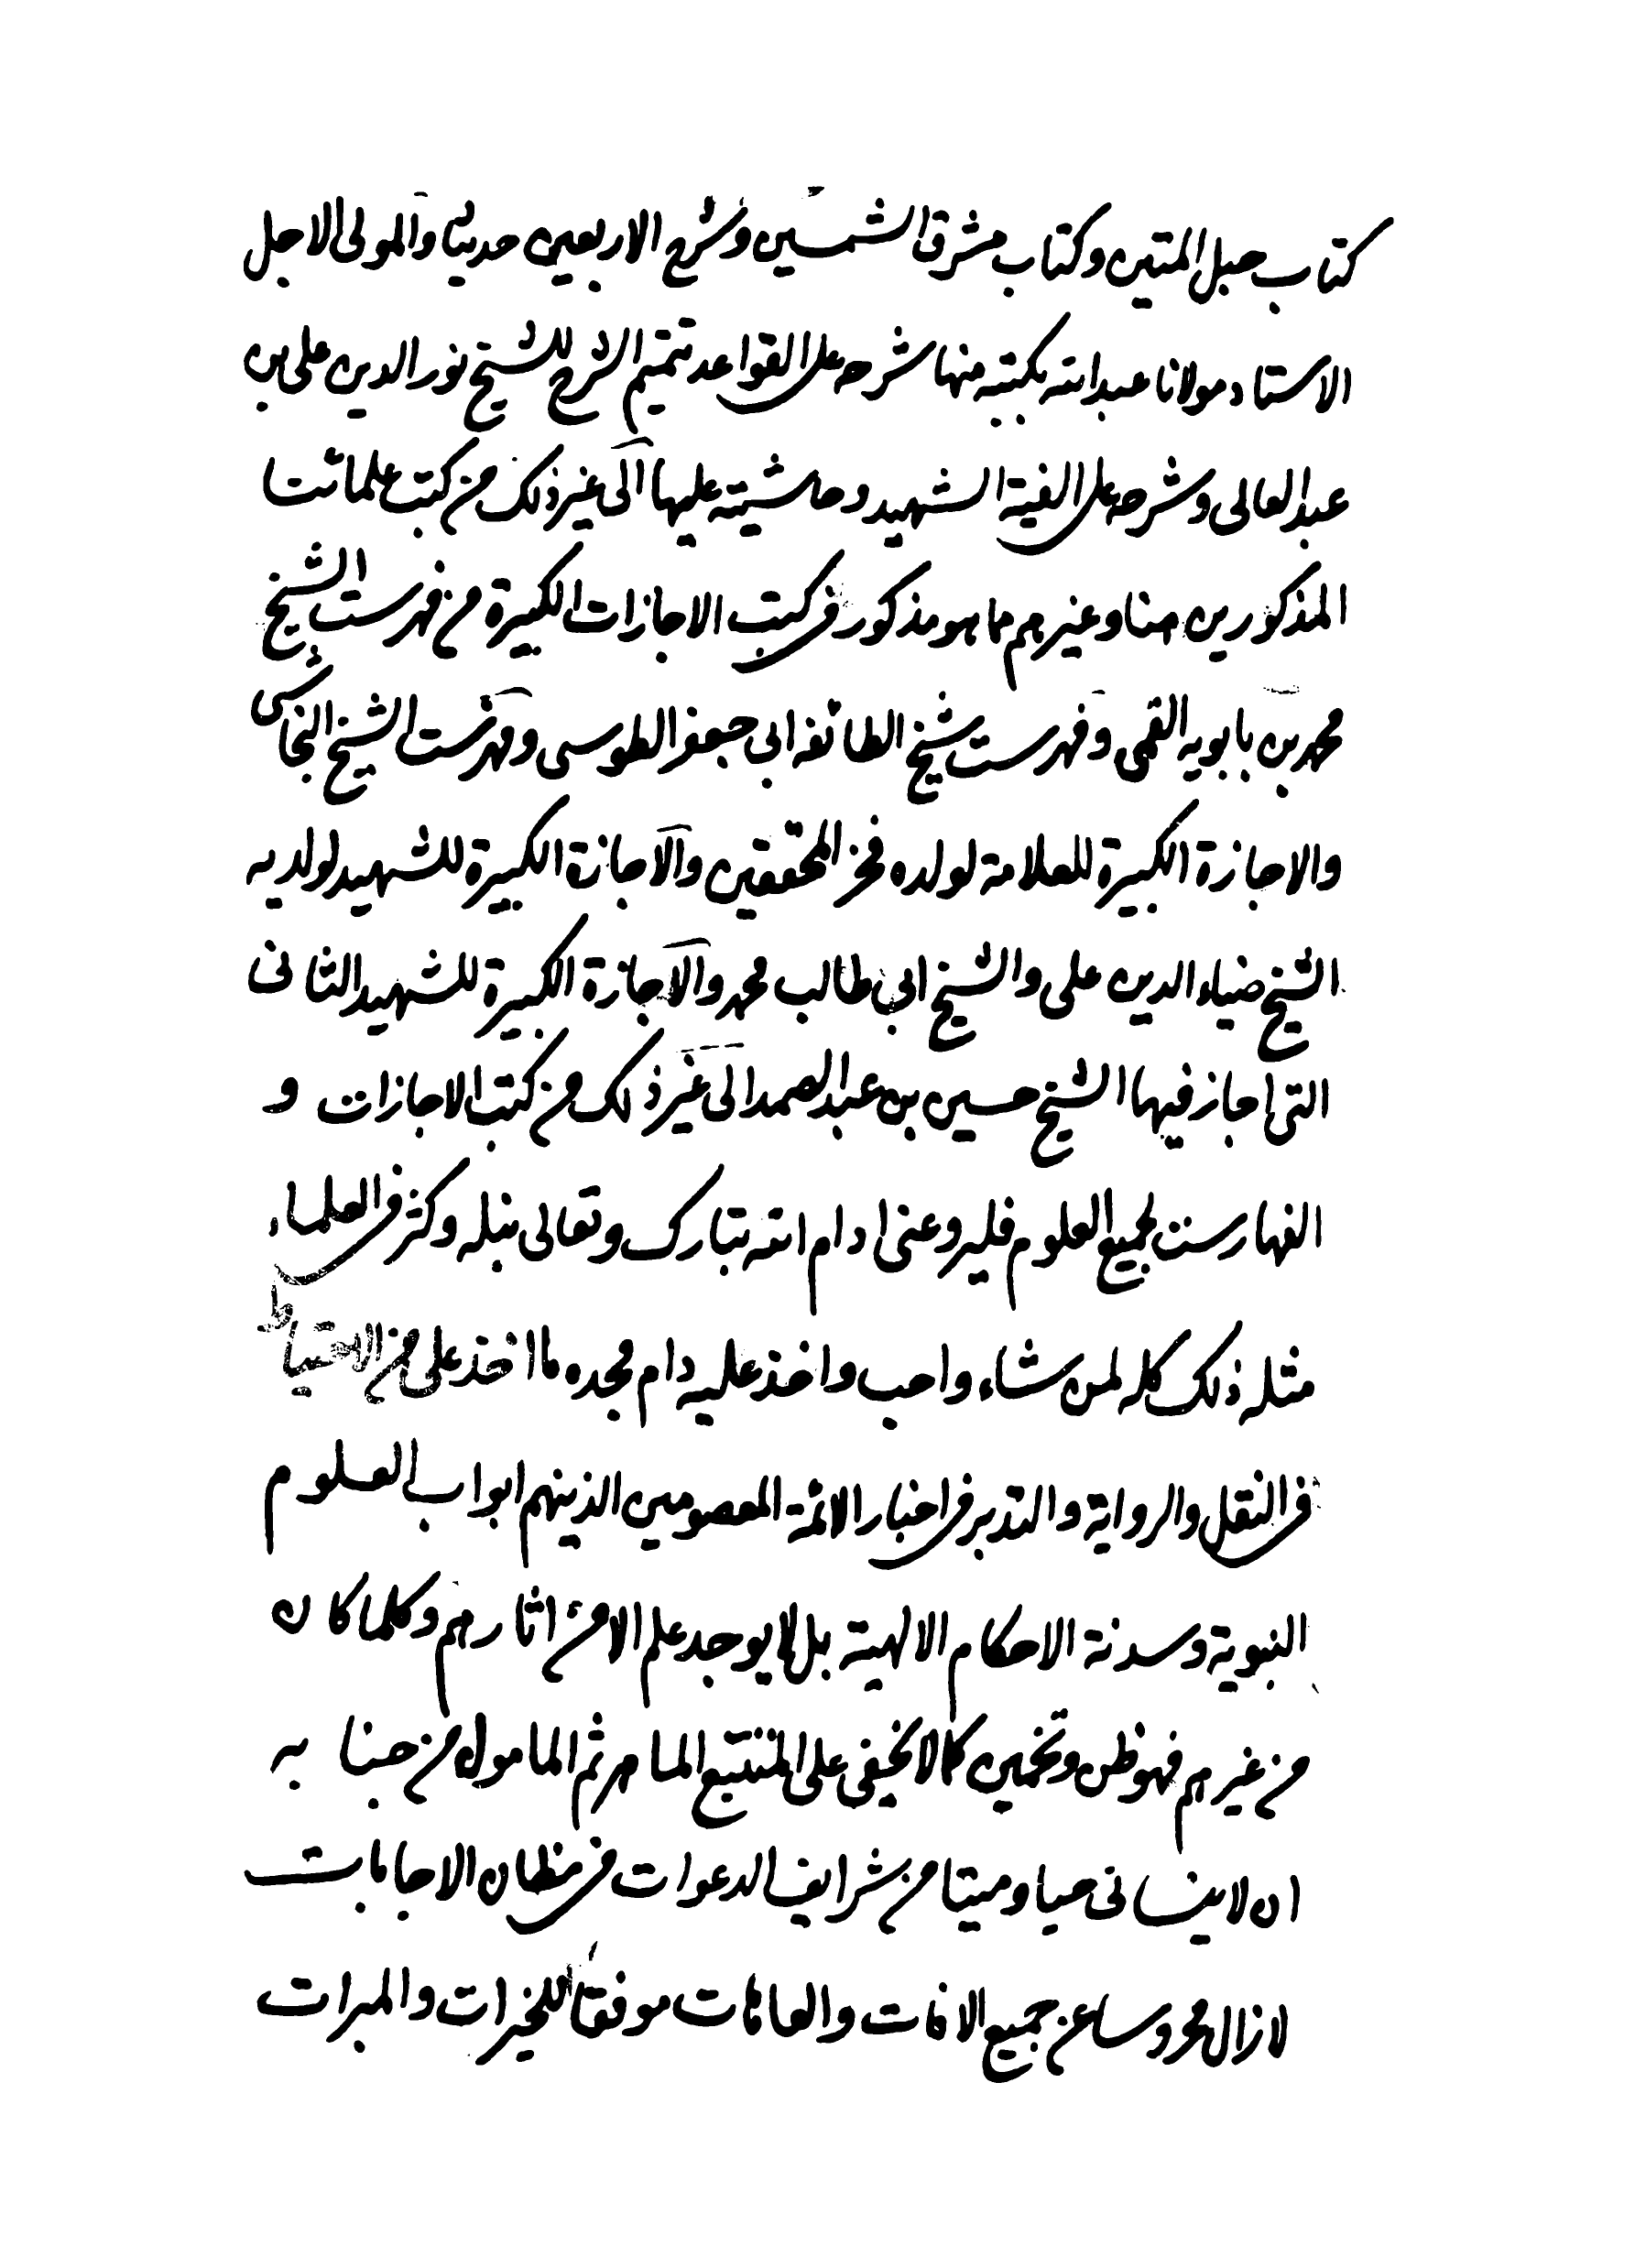 كتاب حبل المتين وكتاب مشرق الشمسين وشرح الاربعين حديثا والمولى الاجل
الاستاد مولانا عبد الله بكتبه منها شرحه على القواعد تتميم الشرح للشيخ نور الدين على بن
عبد العالى وشرحه على الفية الشهيد وحاشيته عليها الى غير ذلك من كتب علمائنا
المذكورين هنا وغيرهم مما هو مذكور في كتب الاجازات الكبيرة من فهرست الشيخ
محمد بن بابويه القمى وفهرست شيخ الطائفه ابى جعفر الطوسى وفهرست الشيخ النجاشى
والاجازة الكبيرة للعلامة لولده فخر المحققين والاجازة الكبيرة للشهيد لولديه
الشيخ ضياء الدين على والشيخ ابى طالب محمد والاجازة الكبيرة للشهيد الثانى
التى اجاز فيها الشيخ حسين بن عبد الصمد الى غير ذلك من كتب الاجازات و
الفهارست لجميع العلوم فليرو عنى ادام الله تبارك وتعالى نبله وكثر في العلماء
مثله ذلك كله لمن شاء واحب واخذ عليه دام مجده ما اخذ على من الاحتياط
في النقل والرواية والتدبر في اخبار الائمة المعصومين الذينهم ابواب العلوم
النبوية وسدنة الاحكام الالهية بل لا يوجد علم الا من اثارهم وكلما كان
من غيرهم فهو ظن وتخمين كما لا يخفى على المتتبع الماهر ثم المامول من جنابه
ان لا ينسانى حيا وميتا من شرايف الدعوات في مظان الاجابات
لازال محروسا عن جميع الافات والعاهات موفقا للخيرات والمبرات